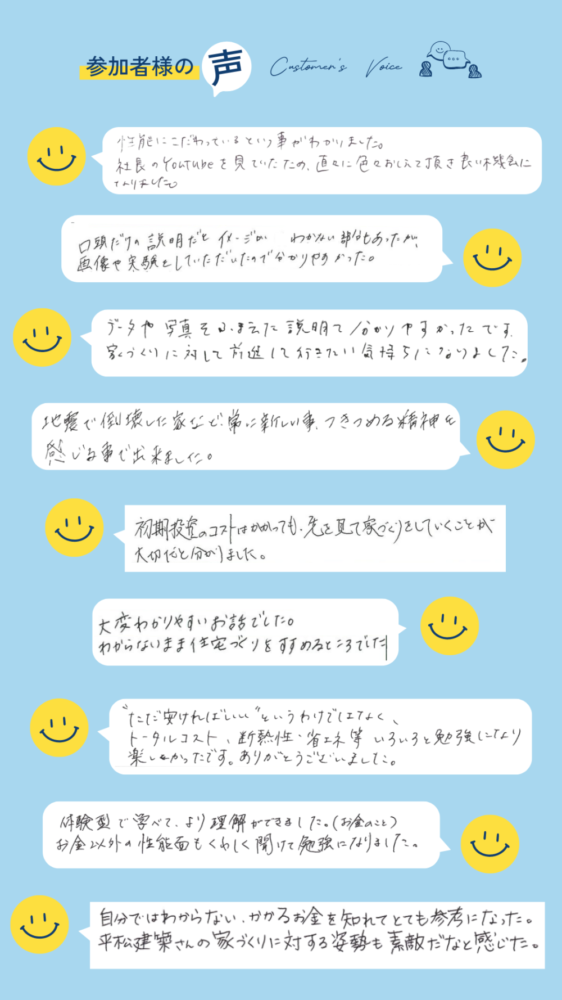 参加者様の声 Customer's Voice
性能にこだわっているという事がわかりました。
社長のYouTubeを見ていたため、直々に色々おしえて頂き良い機会に
なりました。
口頭だけの説明だとイメージが わからない部分もあったが、
画像や実験をしていただいたので分かりやすかった。
データや写真をふまえた説明で分かりやすかったです。
家づくりに対して前進して行きたい気持ちになりました。
地震で倒壊した家など、常に新しい事、つきつめる精神を
感じる事で出来ました。
初期投資のコストはかかっても、先を見て家づくりをしていくことが
大切だと分かりました。
大変わかりやすいお話でした。
わからないまま住宅づくりをすすめるところでした
"ただ安ければいい"というわけではなく、
トータルコスト、断熱性・省エネ等いろいろと勉強になり
楽しかったです。ありがとうございました。
体験型で学べて、より理解ができました。(お金のこと)
お金以外の性能面もくわしく聞けて勉強になりました。
自分ではわからない、かかるお金を知れてとても参考になった。
平松建築さんの家づくりに対する姿勢も素敵だなと感じた。